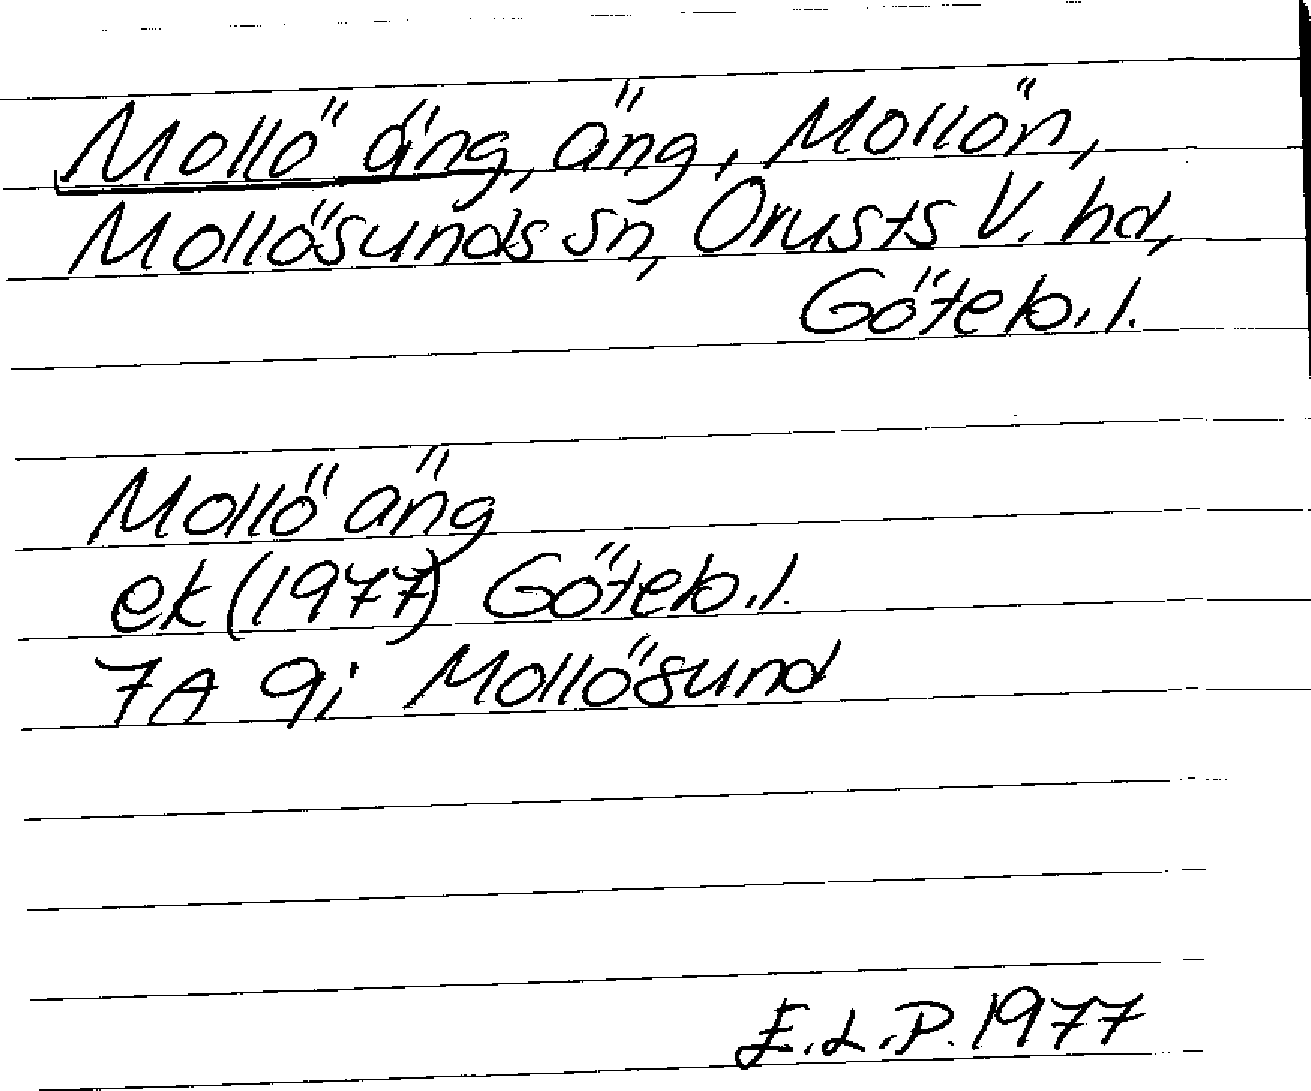 Mollö äng, äng, Mollön,
Mollösunds sn, Orusts V. hd,
Göteb.l.
Mollö äng
ek (1977) Göteb.l.
7A 9i Mollösund
E.L.P. 1977